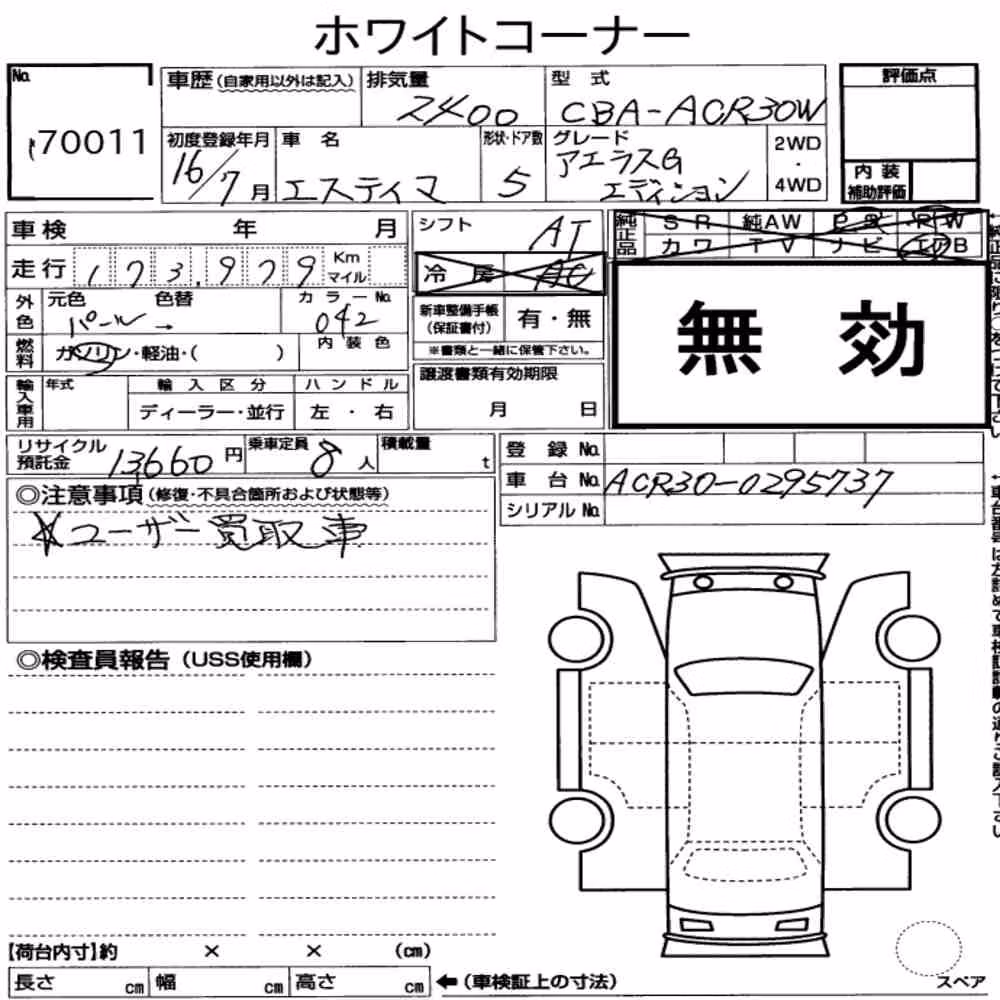 ホワイトコーナー
No. 70011
車歴(自家用以外は記入) 排気量 2400 型 式 CBA-ACR30W 評価点
初度登録年月 16/7月 車 名 エスティマ 形状・ドア数 5 グレード アエラスG エディション 2WD・4WD
内 装 補助評価
車検 年 月 シフト AT 純正品 S R 純AW P S R W
走行 173,979 Km マイル 冷 房 AC カ ワ T V ナ ビ エアB
外色 元色 パール→ 色替 カラーNo. 042 新車整備手帳(保証書付) 有・無
内 装 色
※書類と一緒に保管下さい。
無 効
燃料 ガソリン・軽油・( )
譲渡書類有効期限
月 日
輸入車用 年式 輸 入 区 分 ハ ン ド ル
ディーラー・並行 左 ・ 右
リサイクル預託金 13660円 乗車定員 8人 積載量 t
登 録 No.
車 台 No. ACR30-0295737
シリアル No.
◎注意事項(修復・不具合箇所および状態等)
☆ユーザー買取車
◎検査員報告(USS使用欄)
【荷台内寸】約 × × (cm)
長さ cm 幅 cm 高さ cm ←(車検証上の寸法)
スペア